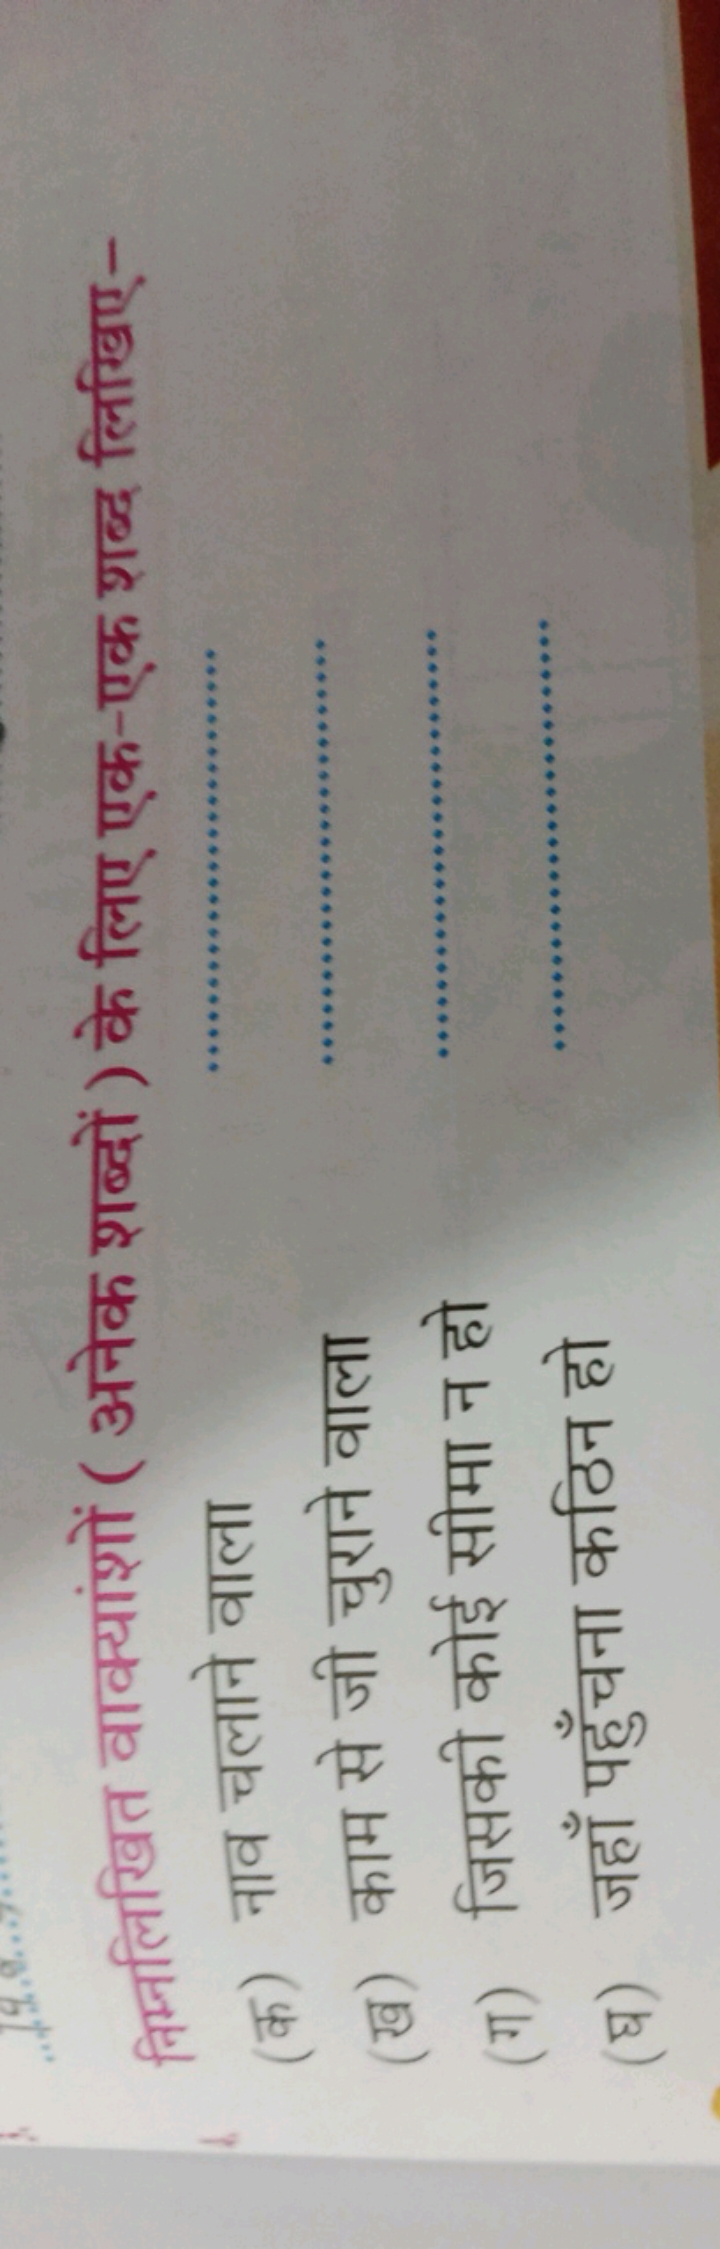 निम्नलिखित वाक्यांशों ( अनेक शब्दों ) के लिए एक-एक शब्द लिखिए-
(क) नाव चलाने वाला ....................................
(ख) काम से जी चुराने वाला ....................................
(ग) जिसकी कोई सीमा न हो ....................................
(घ) जहाँ पहुँचना कठिन हो ....................................